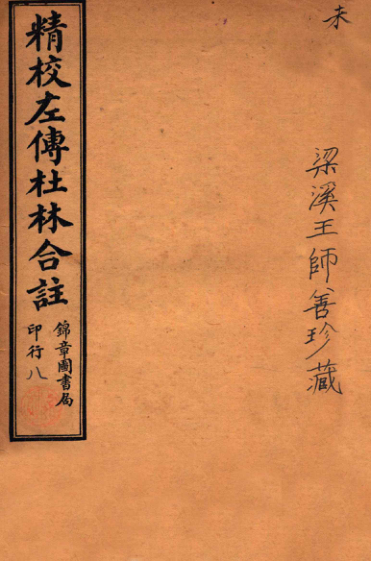 未
梁溪王師善珍藏
精校左傳杜林合註
錦章圖書局
印行 八